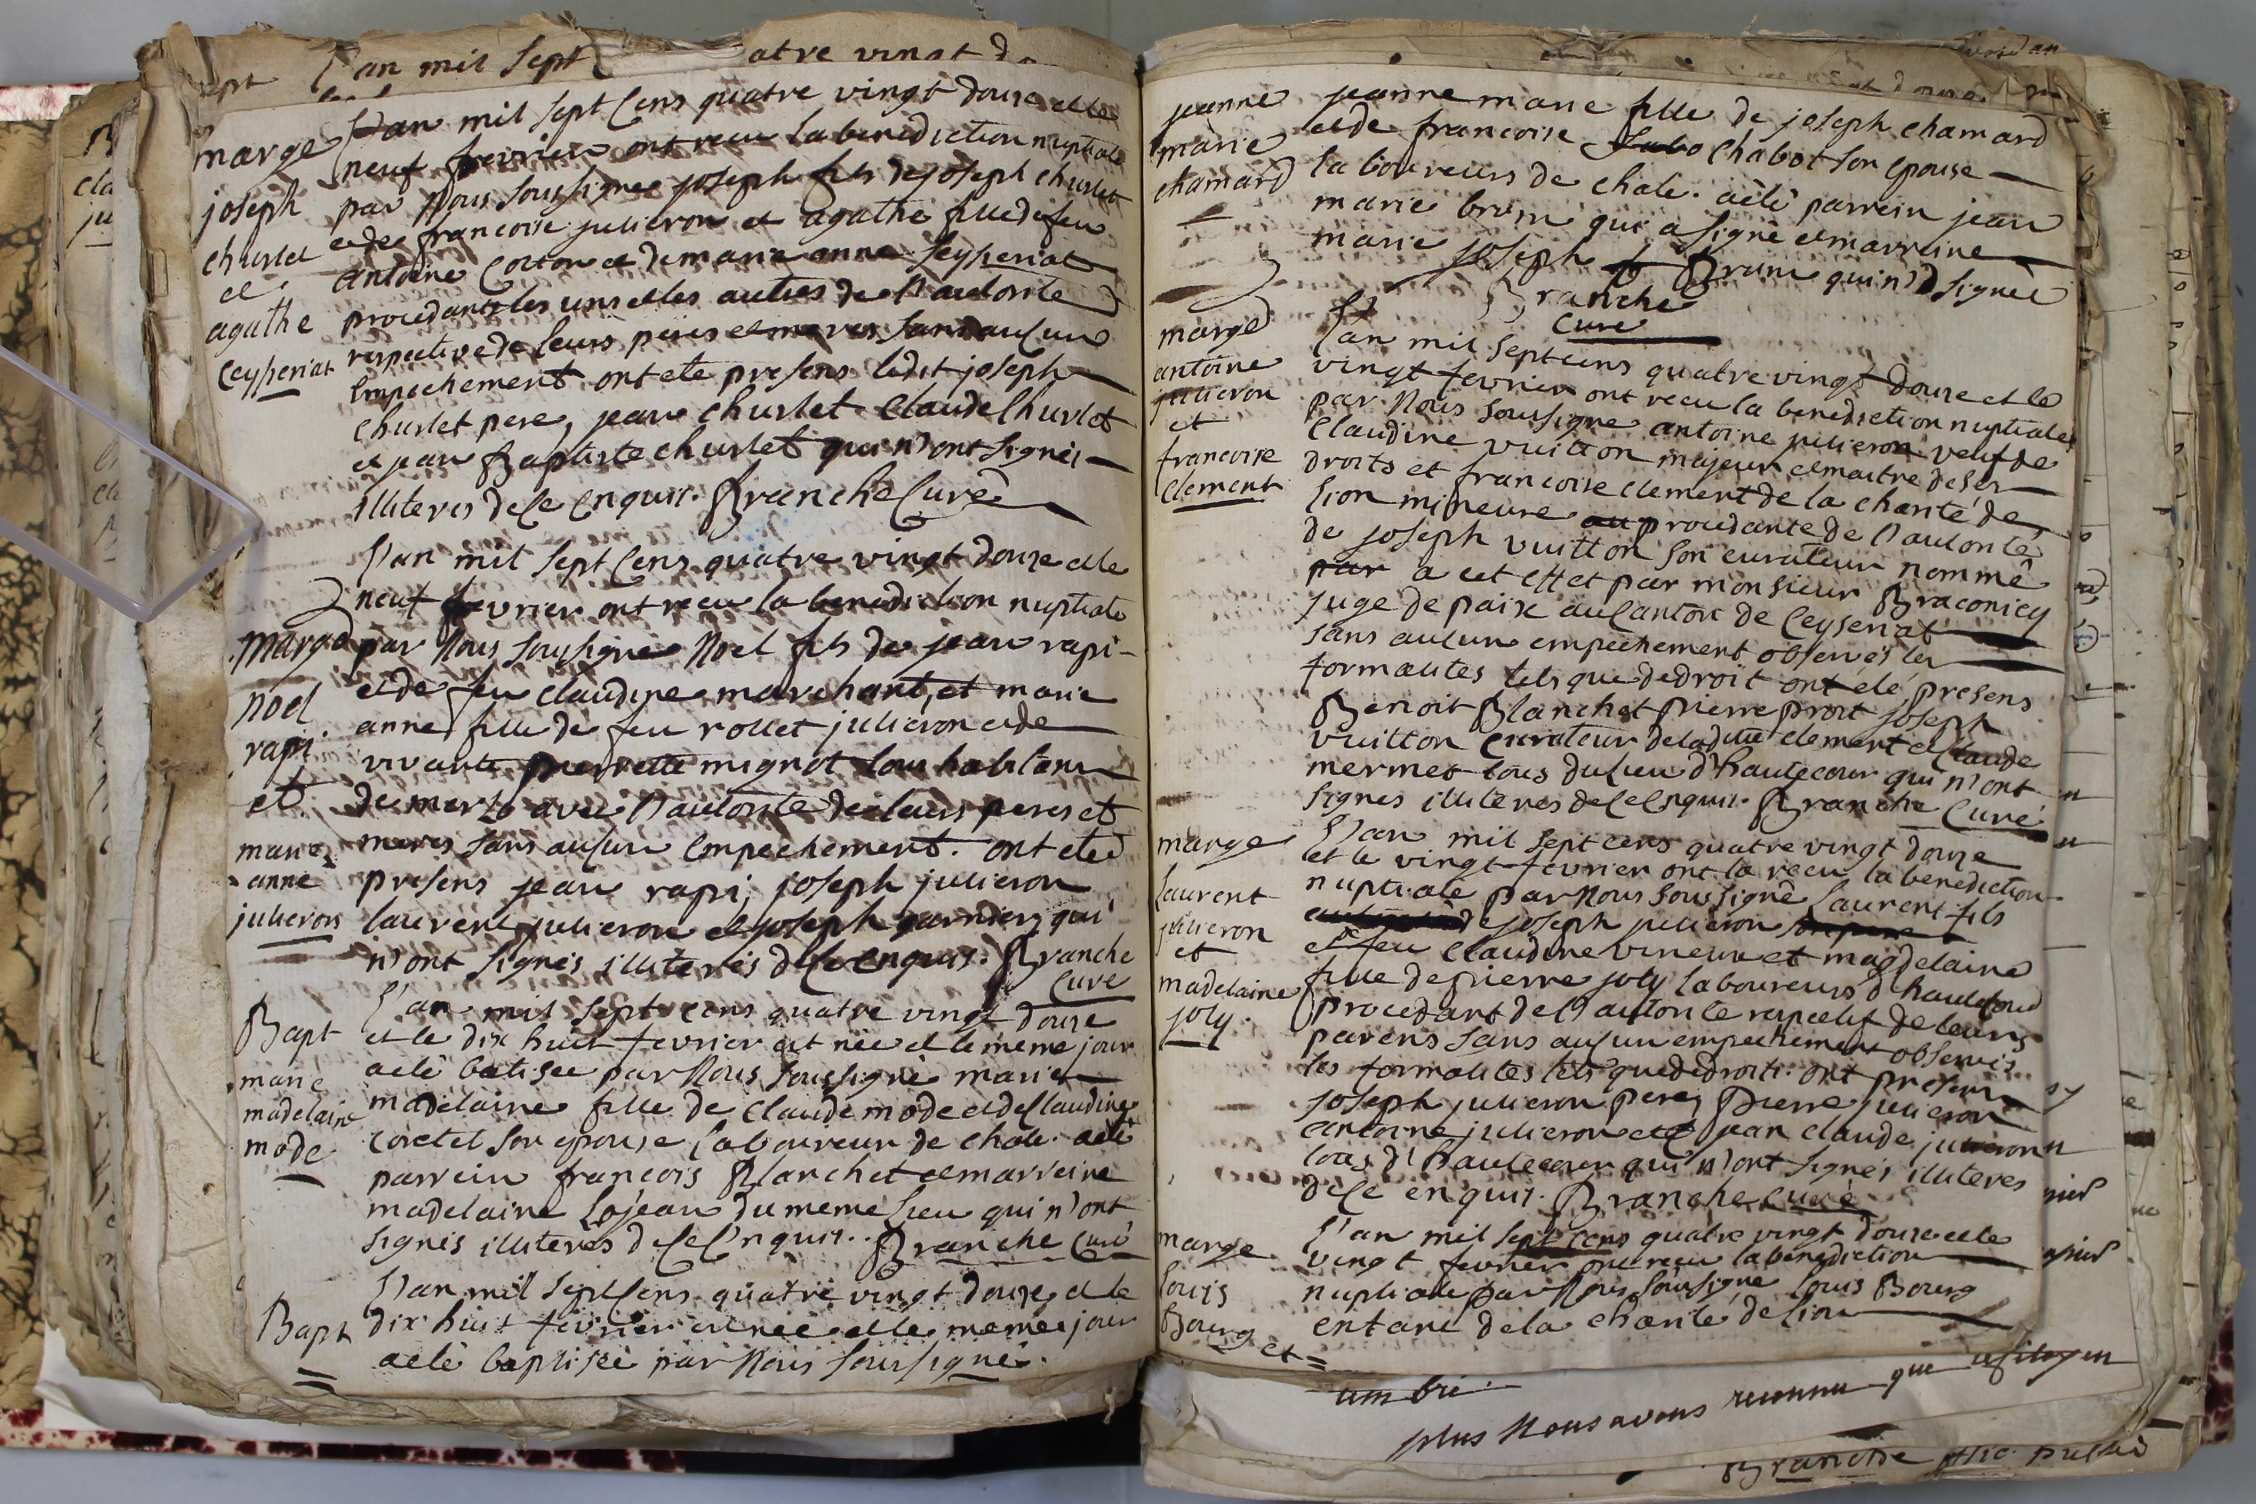 L'an mil sept
atre vingt d
marge
joseph
churlet
et
agathe
Ceyseriat
L'an mil sept Cens quatre vingt douze et le
neuf fevrier ont recu la benediction nuptiale
par Nous soussigné joseph fils de joseph churlet
et de francoise julieron et agathe fille de feu
antoine Cotton et de marie anne Seyseriat
procedants les uns et les autres de l'autorite
respective de leurs peres et meres sans aucun
Empechement ont ete presens ledit joseph
Churlet pere, jean Churlet Claude Churlet
et jean Baptiste churlet qui n'ont signés
illiteres de ce Enquis. Branche Curé
marge
noel
rapi
et
marie
anne
julieron
L'an mil sept Cens quatre vingt douze et le
neuf fevrier ont recu la benediction nuptiale
par Nous soussigné Noel fils de jean rapi
et de feu claudine marchant, et marie
anne fille de feu rollet julieron et de
vivante pierrette mignot tous habitans
de merlo avec l'autorite de leurs peres et
meres sans aucun Empechement. ont eté
presens jean rapi, joseph julieron
laurent julieron et joseph garnier, qui
n'ont signés illiteres de ce enquis. Branche
Curé
Bapt
marie
madelaine
mode
L'an mil sept cens quatre vingt douze
et le dix huit fevrier est née et le meme jour
a eté batisee par Nous soussigné marie
madelaine fille de Claude mode et de Claudine
Coretet son epouse laboureur de chale. a eté
parrein francois Blanchet et marreine
madelaine Lojean du meme lieu qui n'ont
signés illiteres de ce Enquis. Branche Curé
Bapt
L'an mil sept Cens quatre vingt douze et le
dix huit fevrier est née et le meme jour
a eté baptisée par Nous soussigné
jeanne
marie
chamard
jeanne marie fille de joseph chamard
et de francoise chabot son epouse
laboureurs de chale. a eté parrein jean
marie brun qui a signé et marreine
marie joseph Brun qui n'a signée
Branche
Curé
marge
antoine
julieron
et
francoise
Clement
L'an mil sept cens quatre vingt douze et le
vingt fevrier ont recu la benediction nuptiale
par Nous soussigné antoine julieron veuf de
Claudine vuitton majeur et maitre de ses
droits et francoise clement de la charité de
lion mineure procedante de l'autorité
de joseph vuitton son curateur nommé
par a cet effet par monsieur Braconicy
juge de paix au Canton de Ceyseriat
sans aucun empechement observés les
formalites tels que de droit ont eté presens
Benoit Blanchet Pierre Proit joseph
vuitton Curateur de ladite clement et Claude
mermet tous du lieu d'hautecour qui n'ont
signés illiteres de ce Enquis. Branche Curé
marge
laurent
julieron
et
madelaine
joly
L'an mil sept cens quatre vingt douze
et le vingt fevrier ont la recu la benediction
nuptiale par Nous soussigné laurent fils
de joseph julieron
et de feu Claudine vineur et magdelaine
fille de pierre joly laboureurs d'hautecour
procedant de l'autorite respectif de leurs
parens sans aucun empechement observés
les formalites tels que de droit. ont presens
joseph julieron pere, Pierre julieron
antoine julieron et jean claude julieron
tous d'hautecour qui n'ont signés illiteres
de ce enquis. Branche Curé
marge
louis
Bourg et
L'an mil sept cens quatre vingt douze et le
vingt fevrier ont recu la benediction
nuptiale par Nous soussigné louis Bourg
enfant de la charité de lion
plus Nous avons reconnu que citoyen
Branche